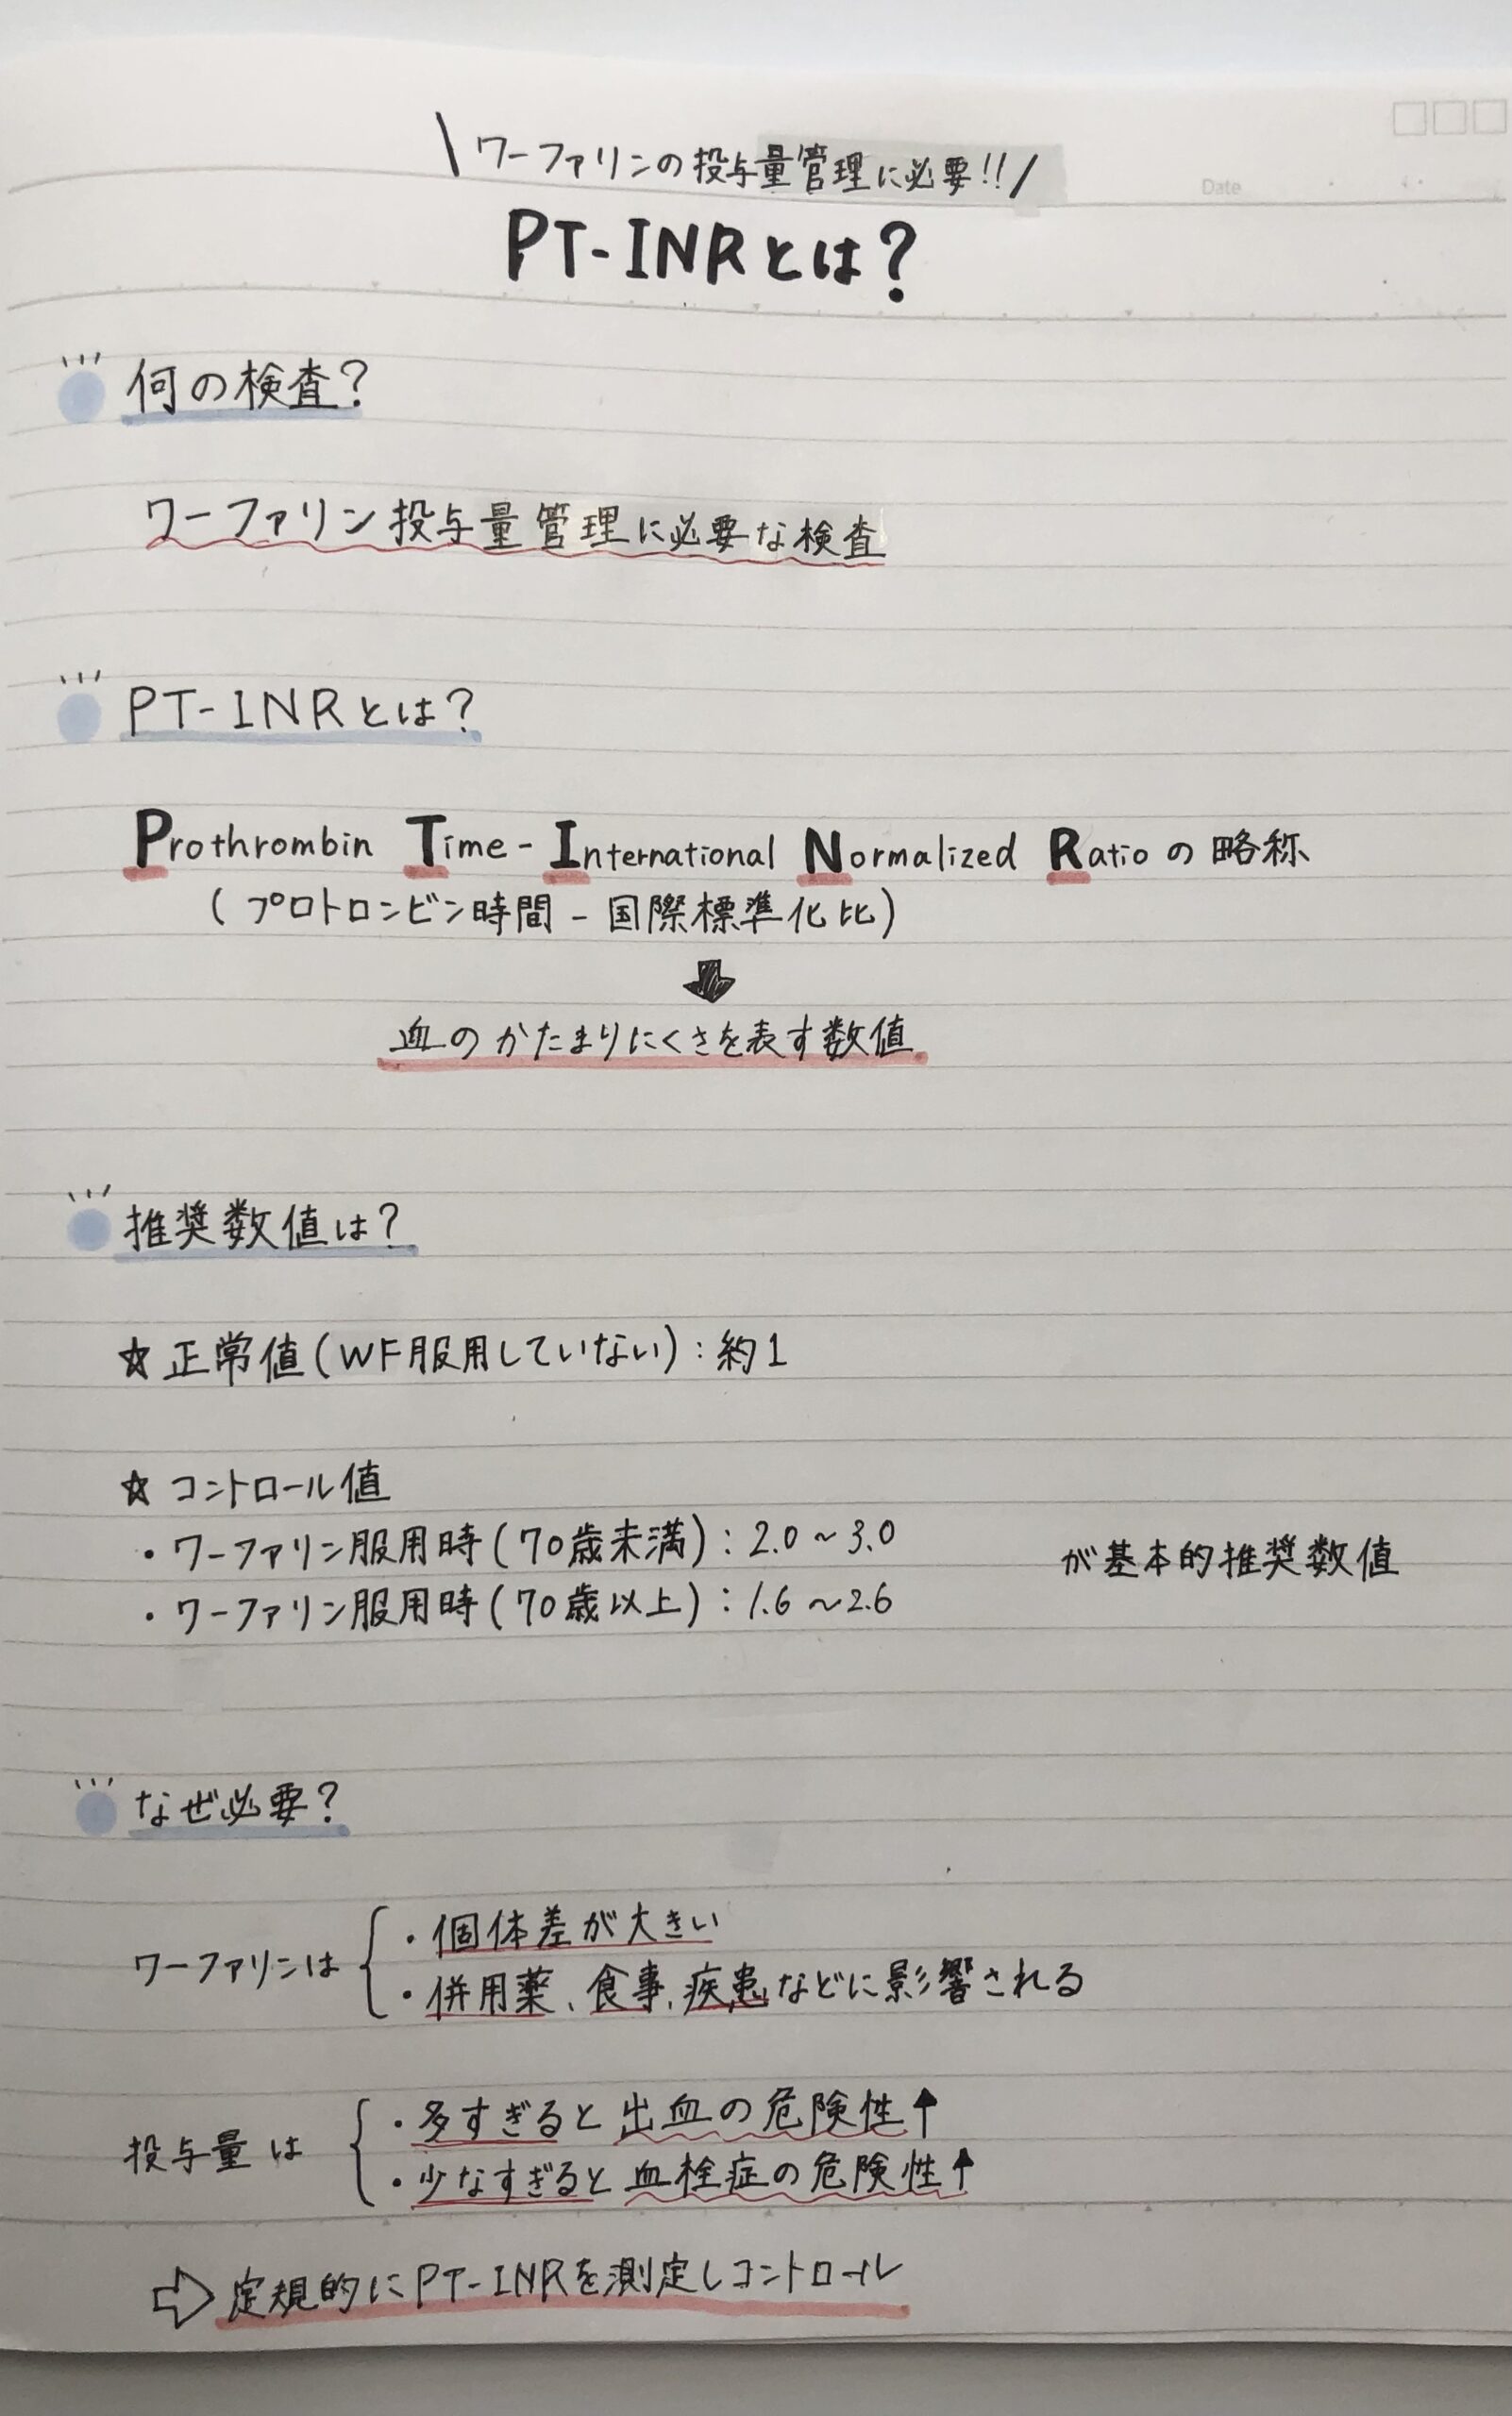 \ ワーファリンの投与量管理に必要!! /
Date
PT-INRとは?
何の検査?
ワーファリン投与量管理に必要な検査
PT-INRとは?
Prothrombin Time-International Normalized Ratioの略称
(プロトロンビン時間-国際標準化比)
⬇
血のかたまりにくさを表す数値
推奨数値は?
☆正常値(WF服用していない):約1
☆コントロール値
・ワーファリン服用時(70歳未満):2.0~3.0
・ワーファリン服用時(70歳以上):1.6~2.6
が基本的推奨数値
なぜ必要?
ワーファリンは
・個体差が大きい
・併用薬、食事、疾患などに影響される
投与量は
・多すぎると出血の危険性↑
・少なすぎると血栓症の危険性↑
⇨定規的にPT-INRを測定しコントロール